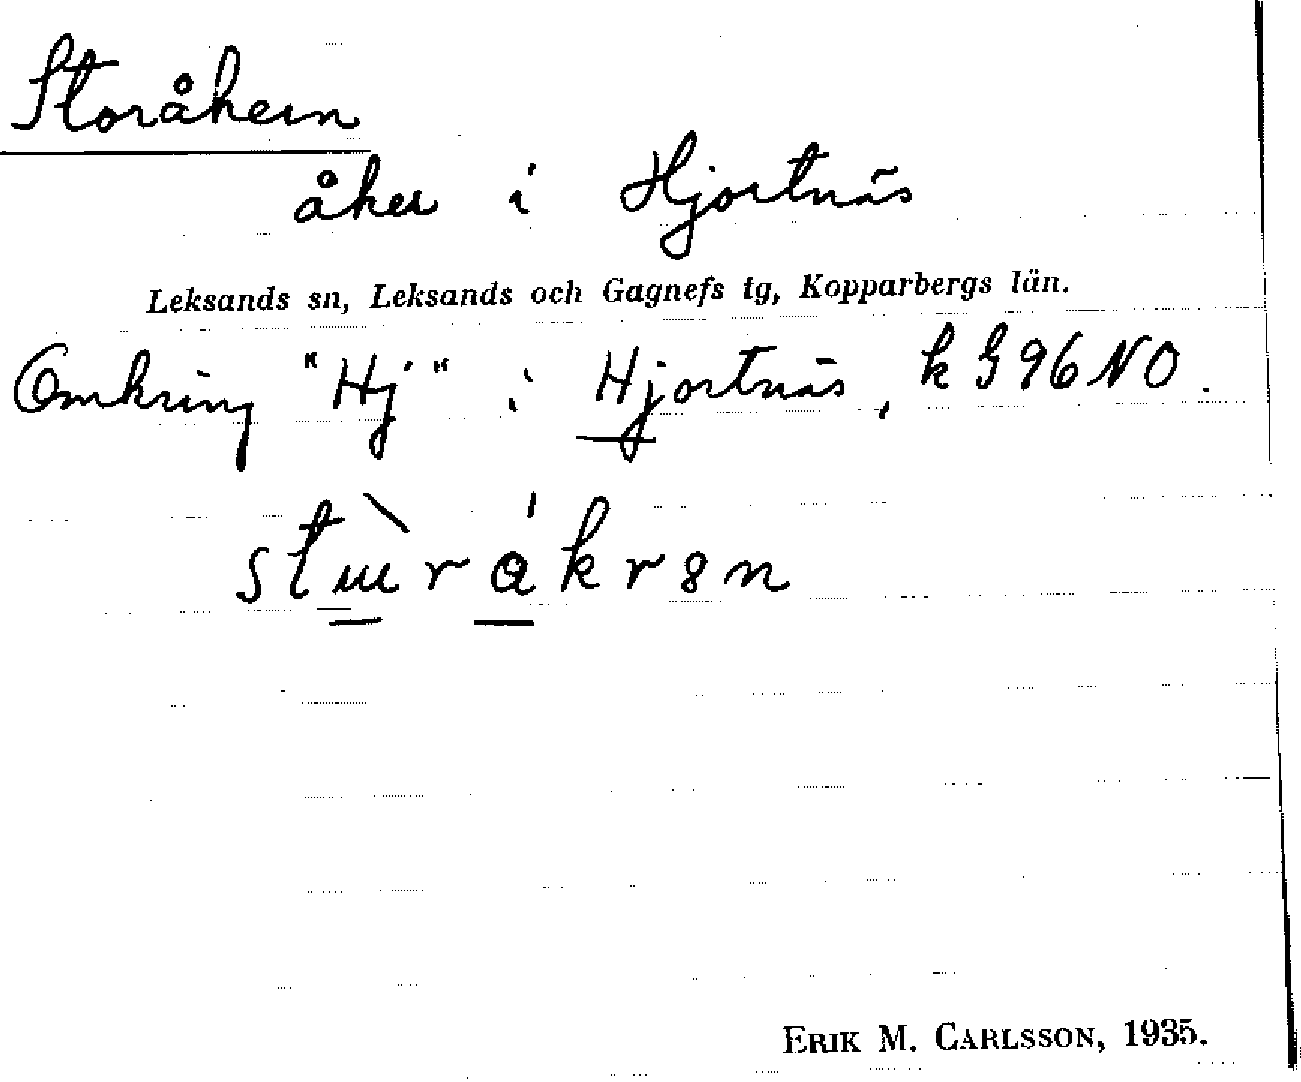 Storåkern
åker i Hjortnäs
Leksands sn, Leksands och Gagnefs tg, Kopparbergs län.
Omkring "Hj" i Hjortnäs, k G 96 NO.
ERIK M. CARLSSON, 1935.